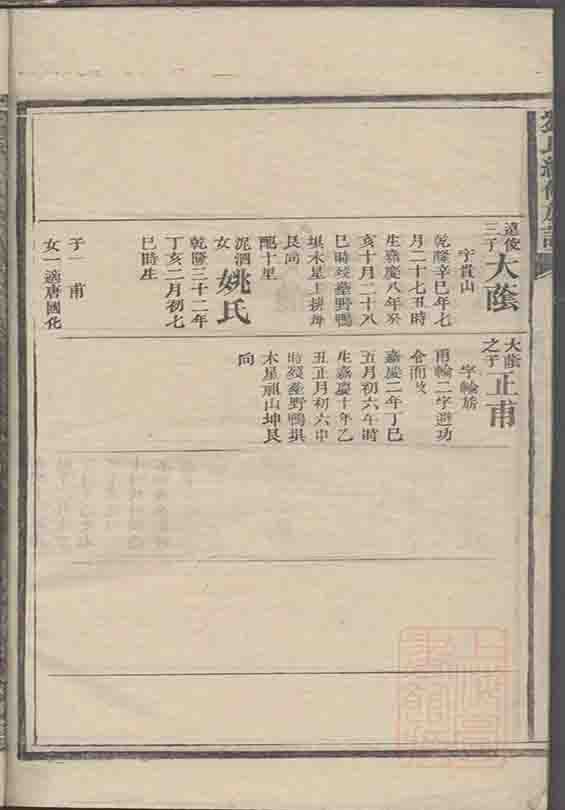 遠俊
三子
大蔭
字貴山
乾隆辛巳年七
月二十七丑時
生嘉慶八年癸
亥十月二十八
巳時歿塟野鴨
垻木星上排
艮向
配十里
泥泗
女
姚氏
乾隆三十二年
丁亥二月初七
巳時生
子一 甫
女一適唐國化
大蔭
之子
正甫
字輪
甫輪二字避功
令而改
嘉慶二年丁巳
五月初六午時
生嘉慶十年乙
丑正月初六申
時歿塟野鴨垻
木星祖山坤艮
向